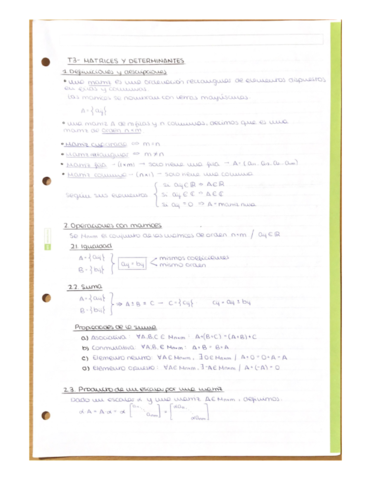 T3- MATRICES Y DETERMINANTES
1. Definiciones y descripciones
• Una matriz es una ordenación rectangular de elementos dispuestos
en filas y columnas.
Las matrices se nombran con letras mayúsculas
A = {aij}
• Una matriz A de n filas y m columnas, decimos que es una
matriz de orden n×m
• Matriz cuadrada ⇔ m = n
• Matriz rectangular ⇔ m ≠ n
• Matriz fila - (1×m) - solo tiene una fila -
• Matriz columna - (n×1) - solo tiene una columna
Según sus elementos
2. Operaciones con matrices
el conjunto de las matrices de orden n×m / aij ∈ R
2.1 Igualdad
A = {aij}
B = {bij}
aij = bij
mismos coeficientes
mismo orden
2.2. Suma
A = {aij}
B = {bij}
⇒ A + B = C → C = {cij} cij = aij + bij
Propiedades de la suma
a) Asociativa: A+(B+C) = (A+B)+C
b) Conmutativa: A+B = B+A
c) Elemento neutro: A+0 = 0+A = A
d) Elemento opuesto: A+(-A) = 0
2.3. Producto de un escalar por una matriz
Dado un escalar α y una matriz A